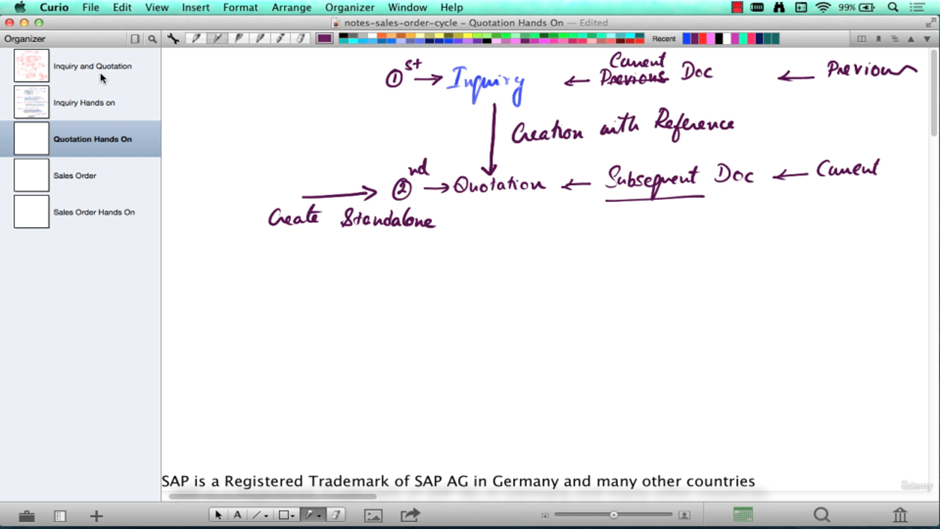 Curio File Edit View Insert Format Arrange Organizer Window Help 99%
notes-sales-order-cycle – Quotation Hands On – Edited
Organizer
Recent
Inquiry and Quotation
Inquiry Hands on
Quotation Hands On
Sales Order
Sales Order Hands On
1 st → Inquiry ← Current Previous Doc ← Previous
Creation with Reference
2 nd → Quotation ← Subsequent Doc ← Current
Create Standalone
SAP is a Registered Trademark of SAP AG in Germany and many other countries
A
Udemy